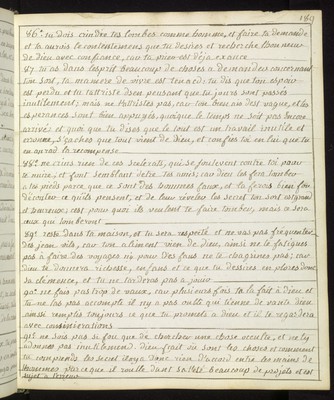 189
86° tu dois ceindre tes lombes comme homme, et faire ta demande
et tu auras le contentement que tu desires et recherche bonheur
de dieu avec confiance, car ta prière est déja exaucé
87 tu as dans l'esprit beaucoup de choses a demander concernant
ton sort, ta maniere de vivre est tenace; tu dis que ton espoir
est perdu et tu t'attriste d'en pensant que tes jours sont passés
inutilement; mais ne t'attristes pas, car ton bonheur n'est vague, et les
esperances sont bien appuyés, quoique le temps ne soit pas encore
arrivé et quoi que tu dises que le tout est un travail inutile et
, sçaches que tout vient de dieu, et confies toi en lui que tu
en aurad la recompense
88° ne crains rien de ces scelerats, qui se soulevent contre toi pour
te nuire, et font semblant d'etre tes amis; car dieu les fera tomber
a tes pieds parce que ce sont des hommes faux, et tu ferais bien
d'écouter ce qu'ils pensent, et de leur réveler les secret ton sort est grand
et heureux; c'est pour quoi ils veulent te faire tomber, mais ce sera
eux qui tomberont
89° reste dans ta maison, et tu sera respecté et ne vas pas frequenter
des gens vils, car ton aliment vien de dieu, ainsi ne te fatigues
pas a faire des voyages ni pour des fans ne te chagrines pas; car
dieu te donnera richesse, enfans et ce que tu desires en plus
sa clemence, et tu ne tarderas pas a jouir
90° ne fais pas rien de vœux, car plusieurs fois tu le fait à dieu et
tu ne las pas accompli il n'y a pas culte qui tienne de vœux dieu
ainsi remplis toujours ce que tu promets a dieu et il te regardera
avec considerations
91° ne sois pas si fou que de chercher une chose occulte, et ne t'y
adonnes pas inutilement. dieu sçait où sont les choses et comment
tu comprends les secret il n'y a rien d'accord entre les mains de
hommes parce que il roulle dans sa tete beaucoup de projets et est
sujet a erreur